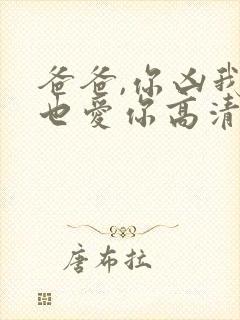 爸爸,你凶我
也爱你高清
唐布拉